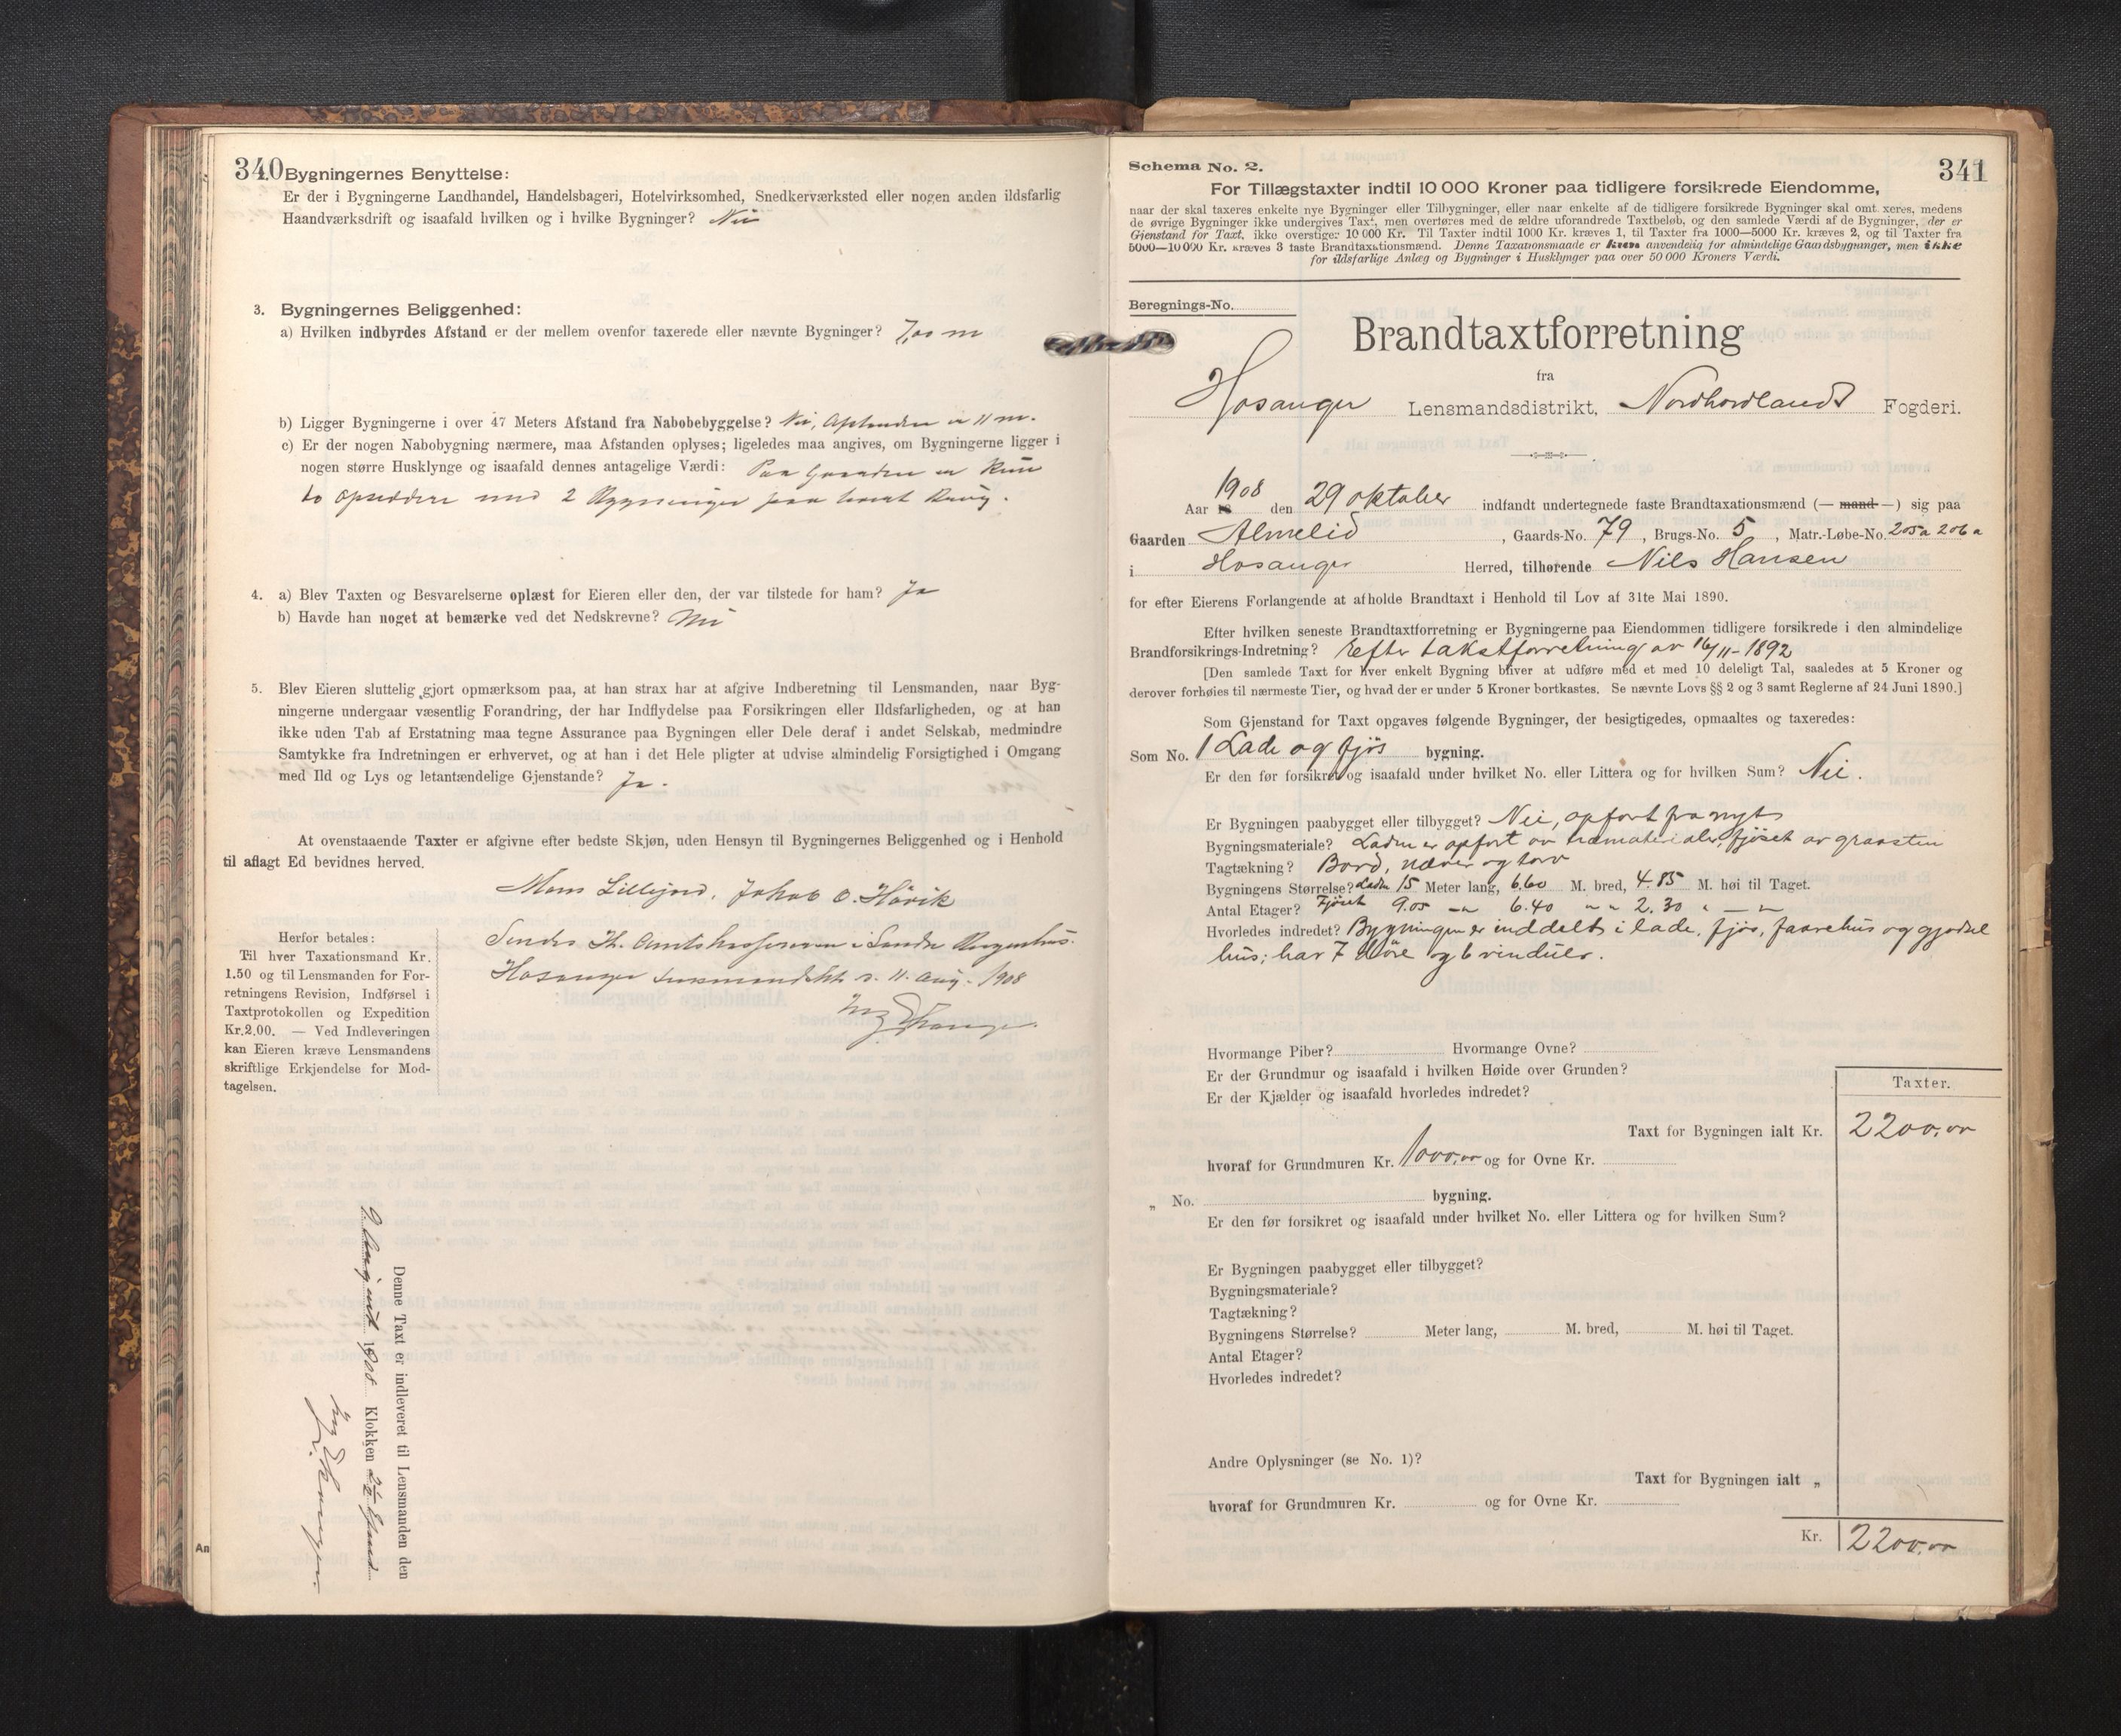 340
Bygningernes Benyttelse:
Er der i Bygningerne Landhandel, Handelsbageri, Hotelvirksomhed, Snedkerværksted eller nogen anden ildsfarlig
Haandværksdrift og isaafald hvilken og i hvilke Bygninger? Nei
3. Bygningernes Beliggenhed:
a) Hvilken indbyrdes Afstand er der mellem ovenfor taxerede eller nævnte Bygninger? 7,00 m
b) Ligger Bygningerne i over 47 Meters Afstand fra Nabobebyggelse? Nei, Afstanden er 11 m.
c) Er der nogen Nabobygning nærmere, maa Afstanden oplyses; ligeledes maa angives, om Bygningerne ligger i
nogen større Husklynge og isaafald dennes antagelige Værdi: Paa Gaarden er kun
to opsiddere med 2 Bygninger paa hvert Brug.
4. a) Blev Taxten og Besvarelserne oplæst for Eieren eller den, der var tilstede for ham? Ja
b) Havde han noget at bemærke ved det Nedskrevne? Nei
5. Blev Eieren sluttelig gjort opmærksom paa, at han strax har at afgive Indberetning til Lensmanden, naar Byg-
ningerne undergaar væsentlig Forandring, der har Indflydelse paa Forsikringen eller Ildsfarligheden, og at han
ikke uden Tab af Erstatning maa tegne Assurance paa Bygningen eller Dele deraf i andet Selskab, medmindre
Samtykke fra Indretningen er erhvervet, og at han i det Hele pligter at udvise almindelig Forsigtighed i Omgang
med Ild og Lys og letantændelige Gjenstande? Ja.
At ovenstaaende Taxter er afgivne efter bedste Skjøn, uden Hensyn til Bygningernes Beliggenhed og i Henhold
til aflagt Ed bevidnes herved.
Mons Lillejord, Jakob O. Håvik
Sendes Hr. Amtskassereren i Søndre Bergenhus.
Hosanger Lensmandsktr. d. 11. Aug. 1908
Herfor betales:
Til hver Taxationsmand Kr.
1.50 og til Lensmanden for For-
retningens Revision, Indførsel i
Taxtprotokollen og Expedition
Kr.2.00. — Ved Indleveringen
kan Eieren kræve Lensmandens
skriftlige Erkjendelse for Mod-
tagelsen.
Denne Taxt er indleveret til Lensmanden den
9 August 1908 Klokken 2½ Efmd.
An
341
Schema No. 2.
For Tillægstaxter indtil 10 000 Kroner paa tidligere forsikrede Eiendomme,
naar der skal taxeres enkelte nye Bygninger eller Tilbygninger, eller naar enkelte af de tidligere forsikrede Bygninger skal omt xeres, medens
de øvrige Bygninger ikke undergives Taxt, men overføres med de ældre uforandrede Taxtbeløb, og den samlede Værdi af de Bygninger, der er
Gjenstand for Taxt, ikke overstiger 10 000 Kr. Til Taxter indtil 1000 Kr. kræves 1, til Taxter fra 1000—5000 Kr. kræves 2, og til Taxter fra
5000—10 000 Kr. kræves 3 faste Brandtaxationsmænd. Denne Taxationsmaade er kun anvendelig for almindelige Gaardsbygninger, men ikke
for ildsfarlige Anlæg og Bygninger i Husklynger paa over 50 000 Kroners Værdi.
Beregnings-No.
Brandtaxtforretning
fra
Hosanger Lensmandsdistrikt, Nordhordlands Fogderi.
Aar 18 1908 den 29 oktober indfandt undertegnede faste Brandtaxationsmænd (— mand —) sig paa
Gaarden Almelid, Gaards-No. 79, Brugs-No. 5, Matr.-Løbe-No. 205a 206a
i Hosanger Herred, tilhørende Nils Hansen
for efter Eierens Forlangende at afholde Brandtaxt i Henhold til Lov af 31te Mai 1890.
Efter hvilken seneste Brandtaxtforretning er Bygningerne paa Eiendommen tidligere forsikrede i den almindelige
Brandforsikrings-Indretning? Efter takstforretning av 16/11-1892
[Den samlede Taxt for hver enkelt Bygning bliver at udføre med et med 10 deleligt Tal, saaledes at 5 Kroner og
derover forhøies til nærmeste Tier, og hvad der er under 5 Kroner bortkastes. Se nævnte Lovs §§ 2 og 3 samt Reglerne af 24 Juni 1890.]
Som Gjenstand for Taxt opgaves følgende Bygninger, der besigtigedes, opmaaltes og taxeredes:
Som No. 1 Lade og fjøs bygning.
Er den før forsikret og isaafald under hvilket No. eller Littera og for hvilken Sum? Nei.
Er Bygningen paabygget eller tilbygget? Nei, opført fra nyt
Bygningsmateriale? Laden er opført av træmaterialer, fjøset av graasten
Tagtækning? Bord, næver og torv
Bygningens Størrelse? Laden 15 Meter lang, 6.60 M. bred, 4.85 M. høi til Taget.
Antal Etager? Fjøset 9.05 —"— 6.40 " " 2.30 " — "—
Hvorledes indredet? Bygningen er inddelt i lade, fjøs, faarehus og gjødsel
hus; har 7 døre og 6 vinduer.
Hvormange Piber? Hvormange Ovne?
Er der Grundmur og isaafald i hvilken Høide over Grunden?
Er der Kjælder og isaafald hvorledes indredet?
Taxter.
Taxt for Bygningen ialt Kr. 2200,00
hvoraf for Grundmuren Kr. 1000,00 og for Ovne Kr.
„ No. bygning.
Er den før forsikret og isaafald under hvilket No. eller Littera og for hvilken Sum?
Er Bygningen paabygget eller tilbygget?
Bygningsmateriale?
Tagtækning?
Bygningens Størrelse? Meter lang, M. bred, M. høi til Taget.
Antal Etager?
Hvorledes indredet?
Andre Oplysninger (se No. 1)?
Taxt for Bygningen ialt „
hvoraf for Grundmuren Kr. og for Ovne Kr.
Kr. 2200,00